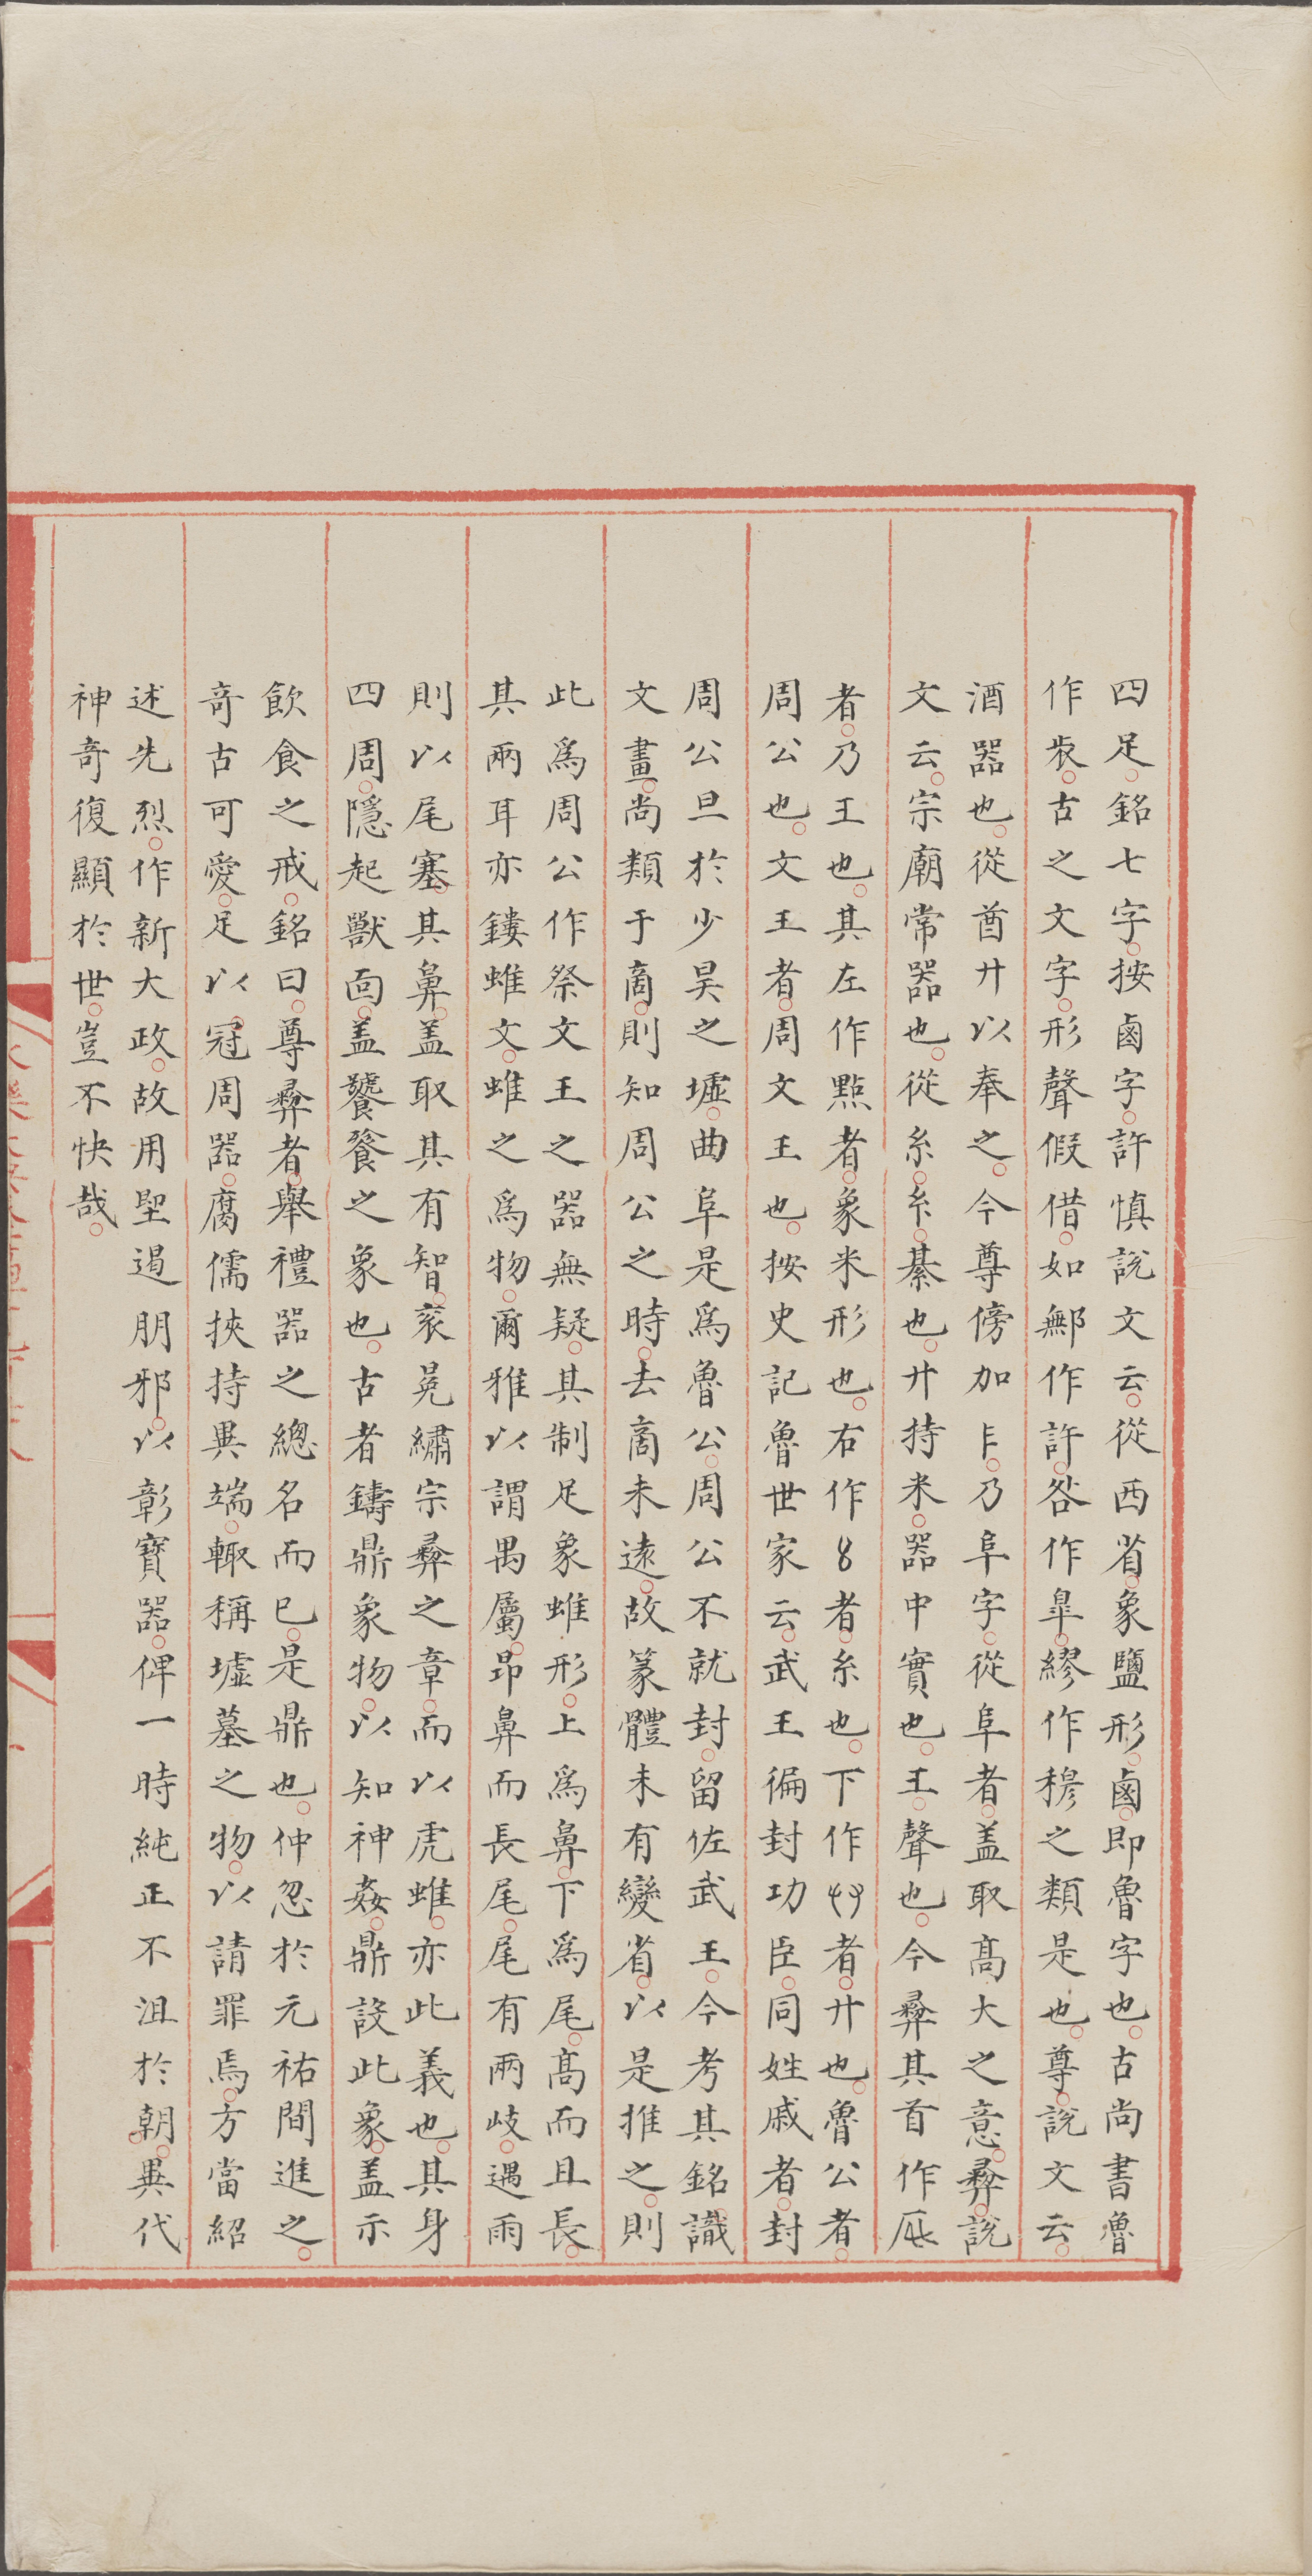 四足銘七字按鹵字許慎說文云從西省象鹽形鹵即魯字也古尚書魯
作㫺古之文字形聲假借如鄦作許咎作臯繆作穆之類是也尊說文云
酒器也從酋廾以奉之今尊傍加阝乃阜字從阜者盖取高大之意彝說
文云宗廟常器也從糸糸綦也廾持米器中實也王聲也今彝其首作
者乃王也其左作㸃者象米形也右作8者糸也下作者廾也魯公者
周公也文王者周文王也按史記魯世家云武王徧封功臣同姓戚者封
周公旦於少昊之墟曲阜是爲魯公周公不就封留佐武王今考其銘識
文畫尚類于商則知周公之時去商未遠故篆體未有變省以是推之則
此爲周公作祭文王之器無疑其制足象蜼形上爲鼻下爲尾髙而且長
其兩耳亦鏤蜼文蜼之爲物爾雅以謂禺屬昂鼻而長尾尾有兩岐遇雨
則以尾塞其鼻盖取其有智衮冕繡宗彝之章而以虎蜼亦此義也其身
四周隱起獸面盖饕餮之象也古者鑄鼎象物以知神姦鼎設此象盖示
飲食之戒銘曰尊彝者舉禮器之總名而已是鼎也仲忽於元祐間進之
竒古可愛足以冠周器腐儒挾持異端輙稱墟墓之物以請罪焉方當紹
述先烈作新大政故用堲遏朋邪以彰寶器俾一時純正不沮於朝異代
神竒復顯於世豈不快哉